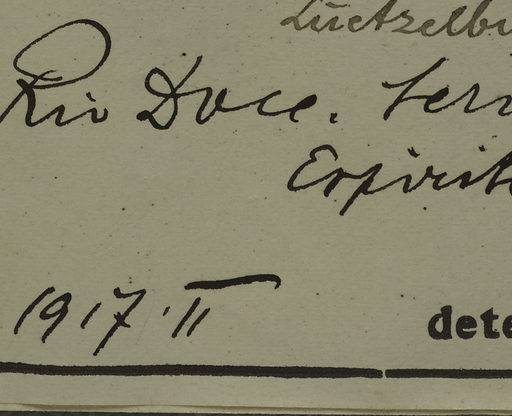 Luetzelbu
Rio Doce. Serr
Espirit
1917. II
dete